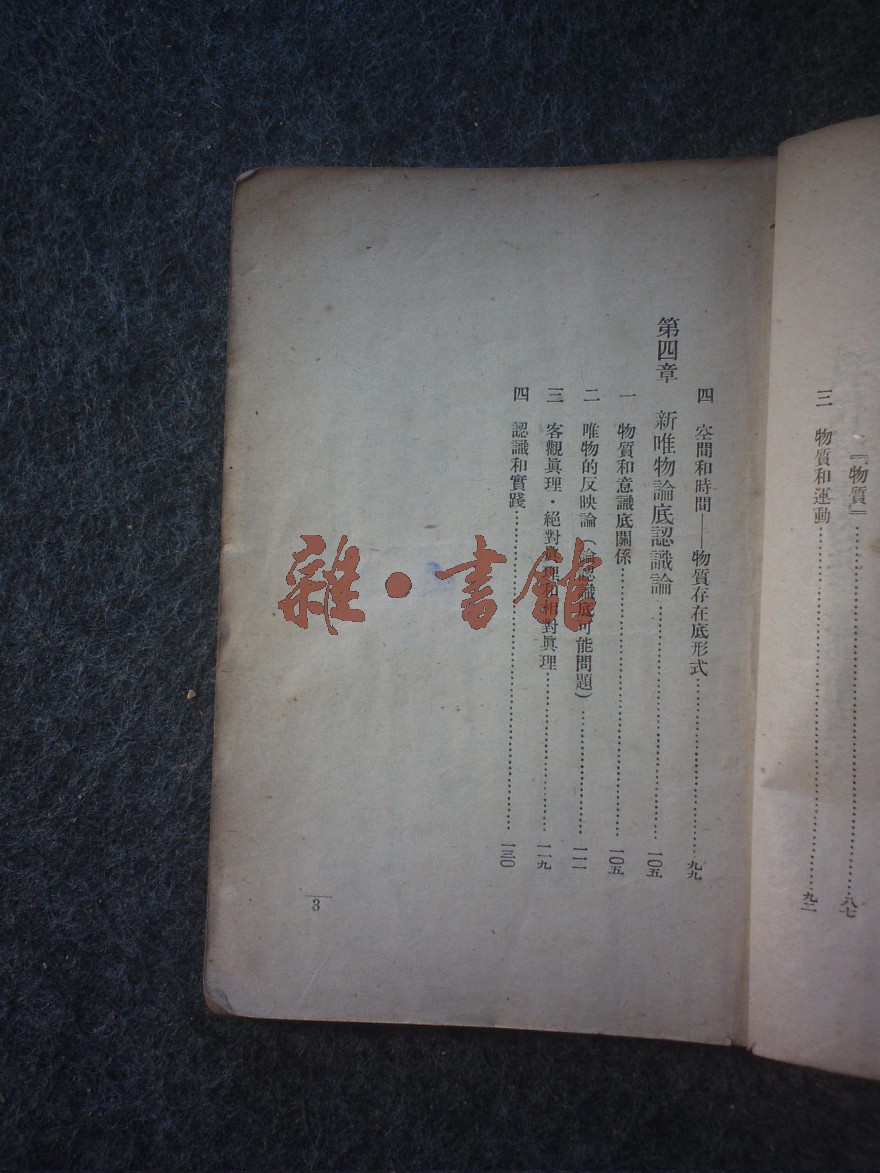 『物質』………………八七
三　物質和運動………………九二
四　空間和時間——物質存在底形式………………九九
第四章　新唯物論底認識論………………一〇五
一　物質和意識底關係………………一〇五
二　唯物的反映論（論認識底可能問題）………………一一一
三　客觀眞理・絕對眞理和相對眞理………………一一九
四　認識和實踐………………一三〇
3
雜・書館